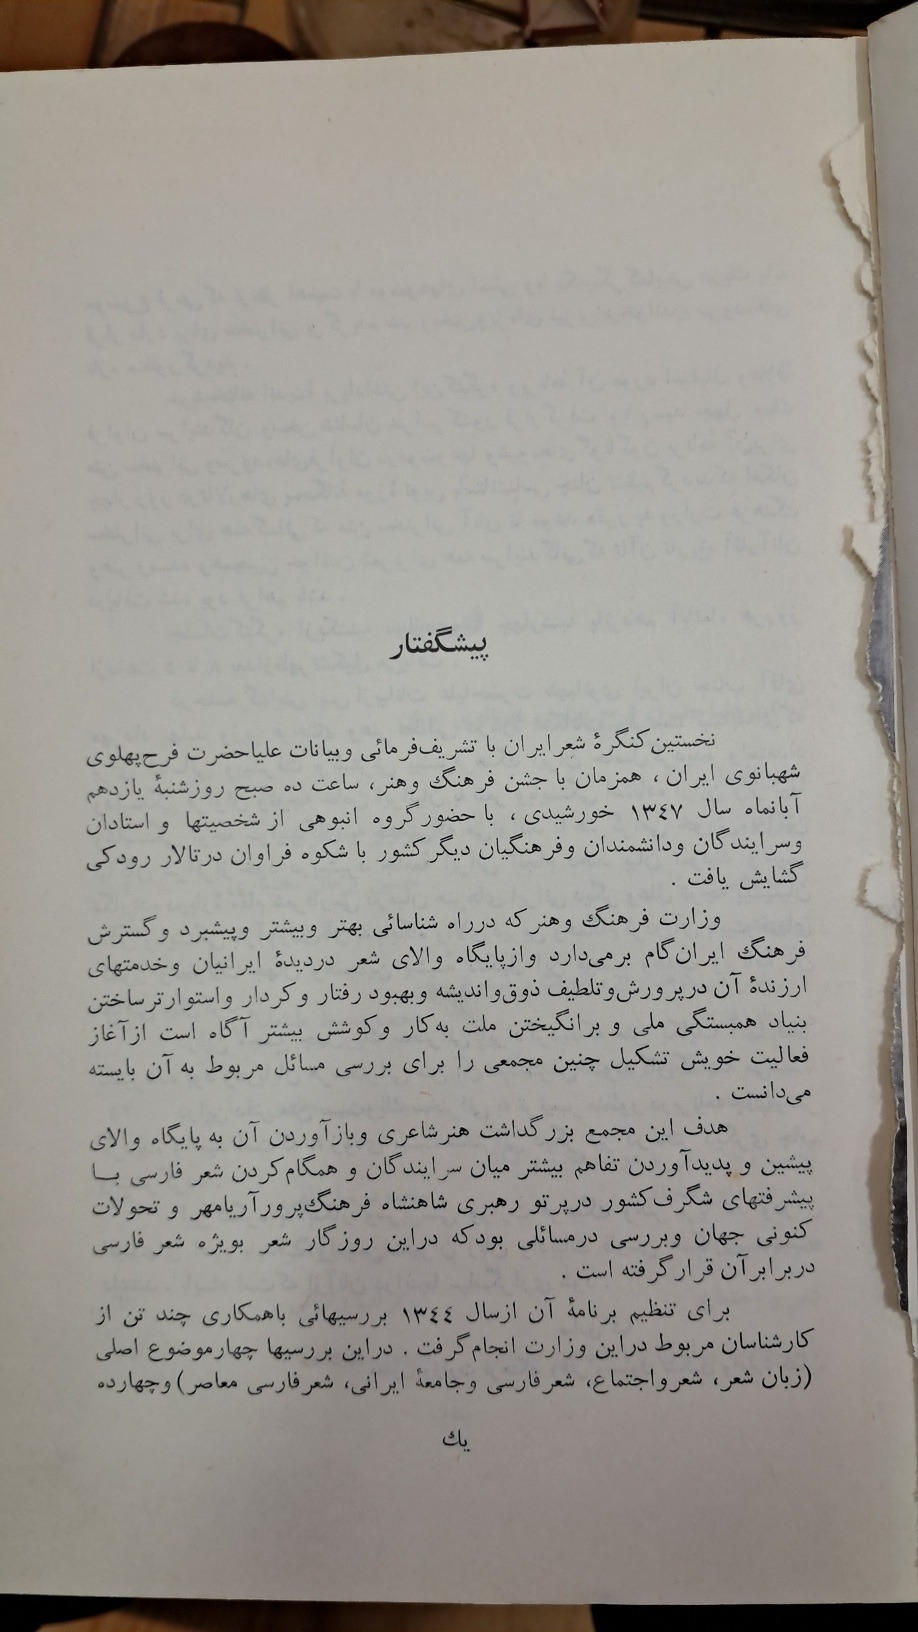 پیشگفتار
نخستین کنگرهٔ شعر ایران با تشریف‌فرمائی و بیانات علیاحضرت فرح پهلوی
شهبانوی ایران ، همزمان با جشن فرهنگ و هنر، ساعت ده صبح روز شنبهٔ یازدهم
آبانماه سال ۱۳٤۷ خورشیدی ، با حضور گروه انبوهی از شخصیتها و استادان
و سرایندگان و دانشمندان و فرهنگیان دیگر کشور با شکوه فراوان در تالار رودکی
گشایش یافت .
وزارت فرهنگ و هنر که در راه شناسائی بهتر و بیشتر و پیشبرد و گسترش
فرهنگ ایران گام برمی‌دارد و از پایگاه والای شعر در دیدهٔ ایرانیان و خدمتهای
ارزندهٔ آن در پرورش و تلطیف ذوق و اندیشه و بهبود رفتار و کردار و استوارتر ساختن
بنیاد همبستگی ملی و برانگیختن ملت به کار و کوشش بیشتر آگاه است از آغاز
فعالیت خویش تشکیل چنین مجمعی را برای بررسی مسائل مربوط به آن بایسته
می‌دانست .
هدف این مجمع بزرگداشت هنر شاعری و بازآوردن آن به پایگاه والای
پیشین و پدیدآوردن تفاهم بیشتر میان سرایندگان و همگام کردن شعر فارسی بـا
پیشرفتهای شگرف کشور در پرتو رهبری شاهنشاه فرهنگ‌پرور آریامهر و تحولات
کنونی جهان و بررسی در مسائلی بود که در این روزگار شعر بویژه شعر فارسی
در برابر آن قرار گرفته است .
برای تنظیم برنامهٔ آن از سال ۱۳٤٤ بررسیهائی با همکاری چند تن از
کارشناسان مربوط در این وزارت انجام گرفت . در این بررسیها چهار موضوع اصلی
(زبان شعر، شعر و اجتماع، شعر فارسی و جامعهٔ ایرانی، شعر فارسی معاصر) و چهارده
یك